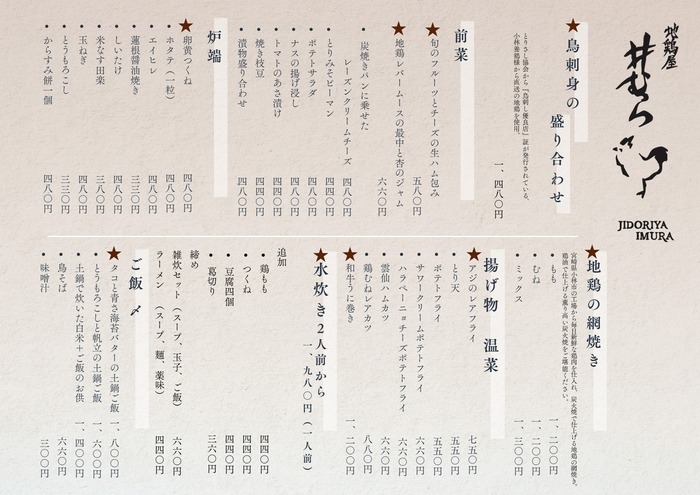 地鶏屋
井むら
JIDORIYA
IMURA
★鳥刺身の盛り合わせ
とりさし協会から『鳥刺し優良店』証が発行されている、
小林養鶏様から直送の地鶏を使用。
一、四八〇円
前菜
★旬のフルーツとチーズの生ハム包み 五八〇円
★地鶏レバームースの最中と杏のジャム 六六〇円
・炭焼きパンに乗せた
レーズンクリームチーズ 四八〇円
・とりみそピーマン 四八〇円
・ポテトサラダ 四八〇円
・ナスの揚げ浸し 四八〇円
・トマトのあさ漬け 四四〇円
・焼き枝豆 四四〇円
・漬物盛り合わせ 四八〇円
炉端
★卵黄つくね 四八〇円
・ホタテ(一粒) 四八〇円
・エイヒレ 四八〇円
・蓮根醤油焼き 三三〇円
・しいたけ 四八〇円
・米なす田楽 四八〇円
・玉ねぎ 四八〇円
・とうもろこし 三三〇円
・からすみ餅一個 四八〇円
★地鶏の網焼き
宮崎県小林市の工場から毎日新鮮な鶏肉を仕入れ、炭火焼で仕上げる地鶏の網焼き。
鶏油で仕上げる薫り高い炭火焼をご堪能ください。
・もも 一、二〇〇円
・むね 一、二〇〇円
・ミックス 一、三〇〇円
揚げ物 温菜
★アジのレアフライ 七五〇円
・とり天 五五〇円
・ポテトフライ 五五〇円
・サワークリームポテトフライ 六六〇円
・ハラペーニョチーズポテトフライ 六六〇円
・雲仙ハムカツ 六六〇円
・鶏むねレアカツ 八八〇円
★和牛うに巻き 一、二〇〇円
★水炊き2人前から 一、九八〇円(一人前)
追加
・鶏もも 四四〇円
・つくね 四四〇円
・豆腐四個 四四〇円
・葛切り 三六〇円
締め
雑炊セット(スープ、玉子、ご飯) 六六〇円
ラーメン(スープ、麺、薬味) 四四〇円
ご飯〆
★タコと青さ海苔バターの土鍋ご飯 一、八〇〇円
・とうもろこしと帆立の土鍋ご飯 一、六〇〇円
・土鍋で炊いた白米+ご飯のお供 一、四〇〇円
・鳥そば 六六〇円
・味噌汁 三〇〇円